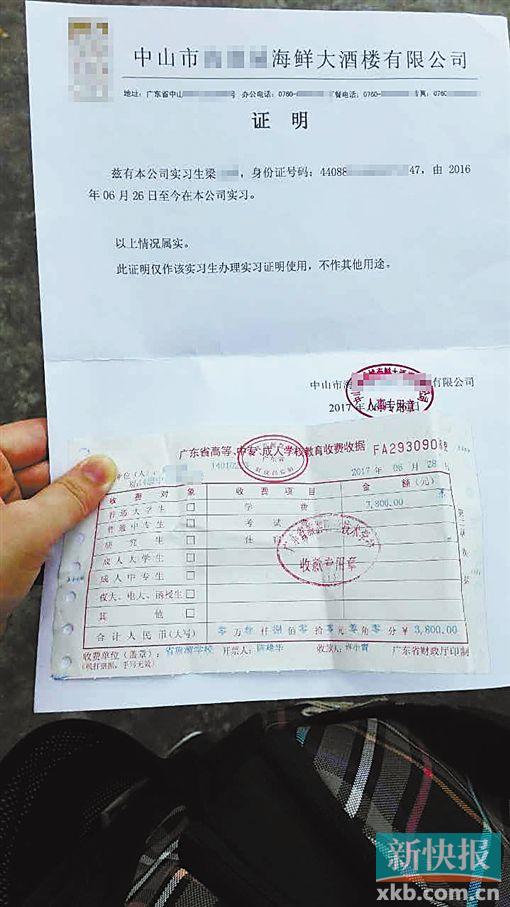 中山市 海鲜大酒楼有限公司
地址：广东省中山 号 办公电话：0760- 餐电话：0760- 真：0760
证 明
兹有本公司实习生梁 ，身份证号码：44088 47，由 2016
年 06 月 26 日至今在本公司实习。
以上情况属实。
此证明仅作该实习生办理实习证明使用，不作其他用途。
中山市海 有限公司
2017 年 0
人事专用章
广东省高等、中专、成人学校教育收费收据 FA293090
2017 年 06 月 28 日
收 费 对 象 收 费 项 目 金 额（元）
普通大学生 □ 学 费 3,800.00
普通中专生 □ 考 试
研 究 生 □ 住
成人大学生 □
成人中专生 □
夜大、电大、函授生 □
其 他 □
收款专用章
合计人民币（大写） 零 万 叁 仟 捌 佰 零 拾 零 元 零 角 零 分 ￥3,800.00
收费单位（盖章）：省旅游学校 开票人： 收款人： 广东省财政厅印制
新快报
xkb.com.cn